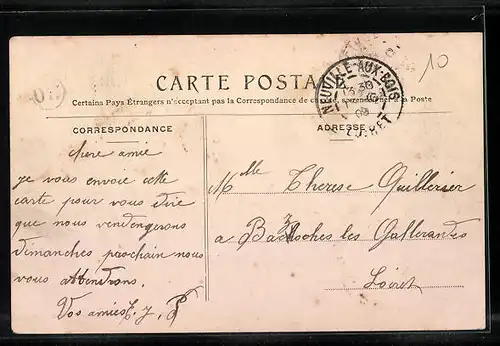 10
CARTE POSTALE
Certains Pays Étrangers n'acceptant pas la Correspondance de ce côté, se renseigner à la Poste
CORRESPONDANCE
ADRESSE
NEUVILLE-AUX-BOIS
30
09
LOIRET
chere amie
je vous envoie cette
carte pour vous dire
que nous vendengerons
dimanches prochain nous
vous attendrons.
Vos amies
Mlle Therese Guillerier
a Bazoches les Gallerandes
Loiret